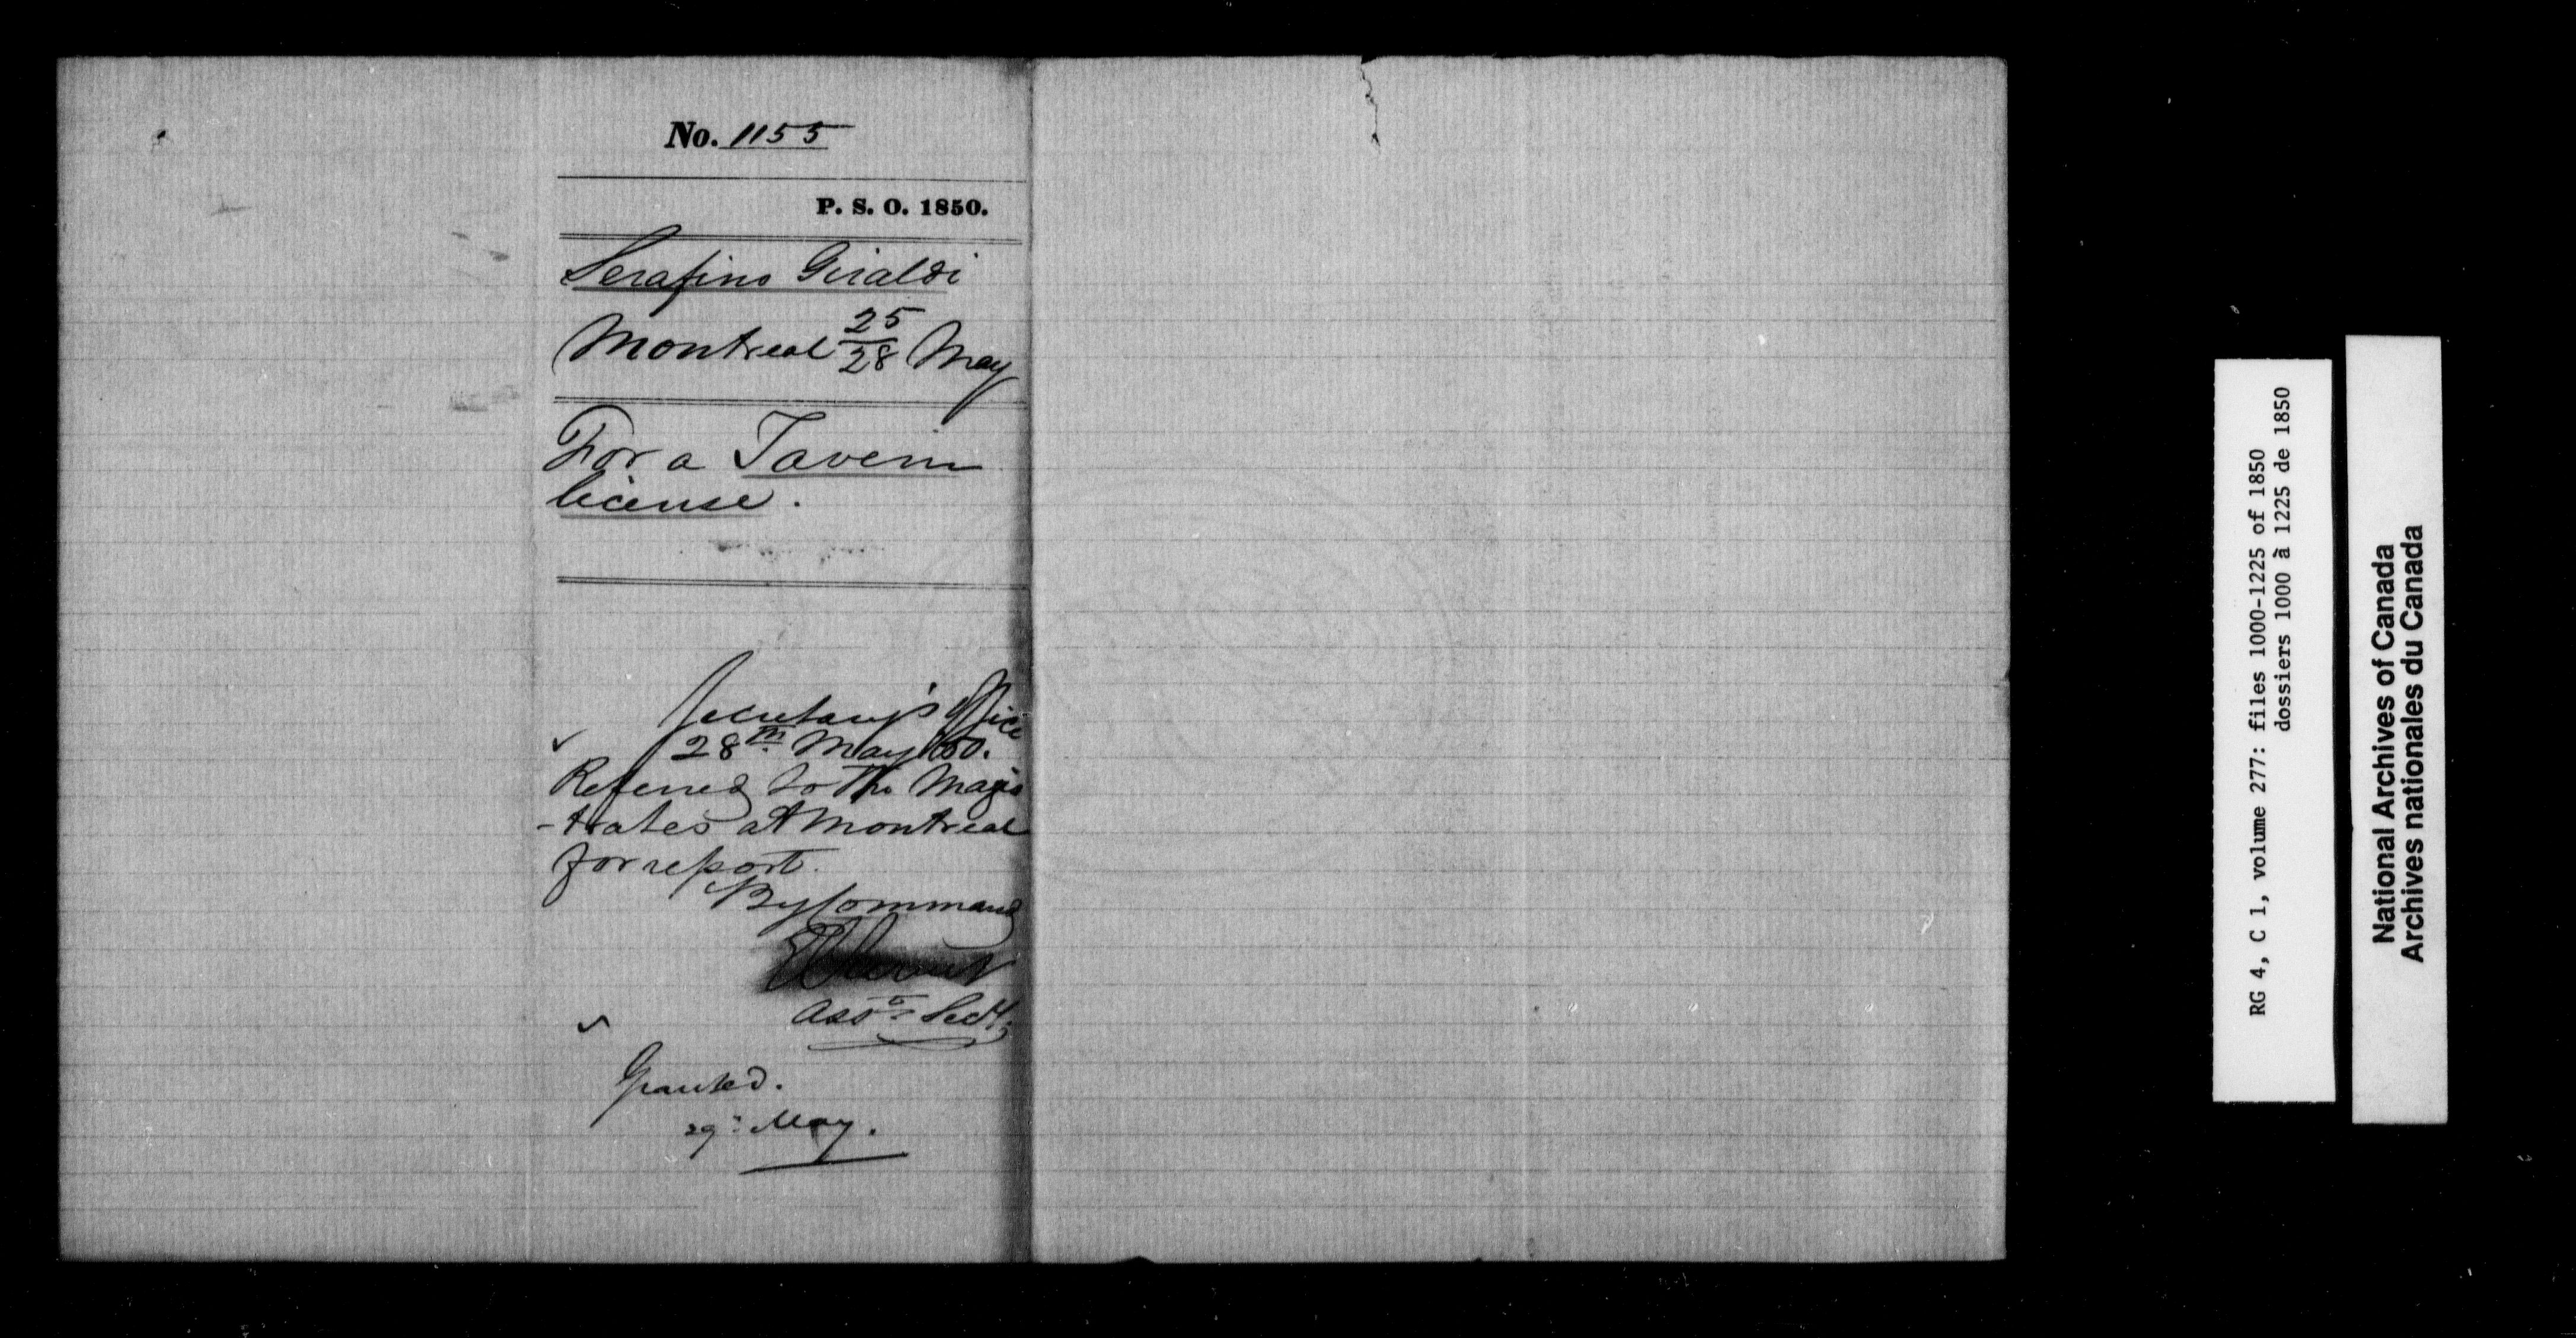 No. 1155
P. S. O. 1850.
Serafino Giraldi
Montreal 25/28 May
For a Tavern
license.
Secretary's Office
28th May /50.
Referred to the Magis
-trates at Montreal
for report.
By Command
Asst Secy
Granted.
29th May.
RG 4, C 1, volume 277: files 1000-1225 of 1850
dossiers 1000 à 1225 de 1850
National Archives of Canada
Archives nationales du Canada